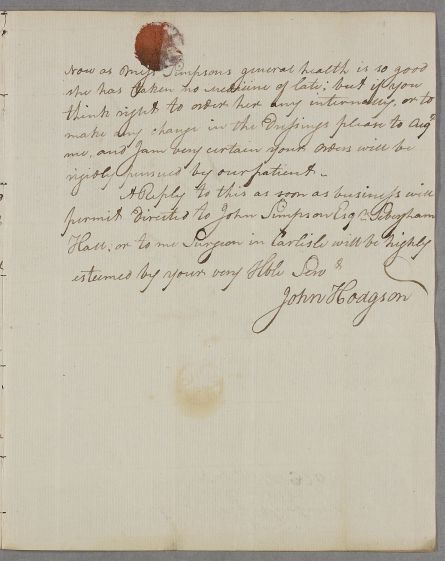 Now as Miss Simpsons general health is so good
she has taken no medicine of late; but if you
think right to order her any internally, or to
make any change in the Dressings please to
me, and I am very certain your orders will be
rigidly pursued by our patient –
A Reply to this as soon as business will
permit Directed to John Simpson Esqr Sebergham
Hall, or to me Surgeon in Carlisle will be highly
esteemed by your very Hble Serv
John Hodgson